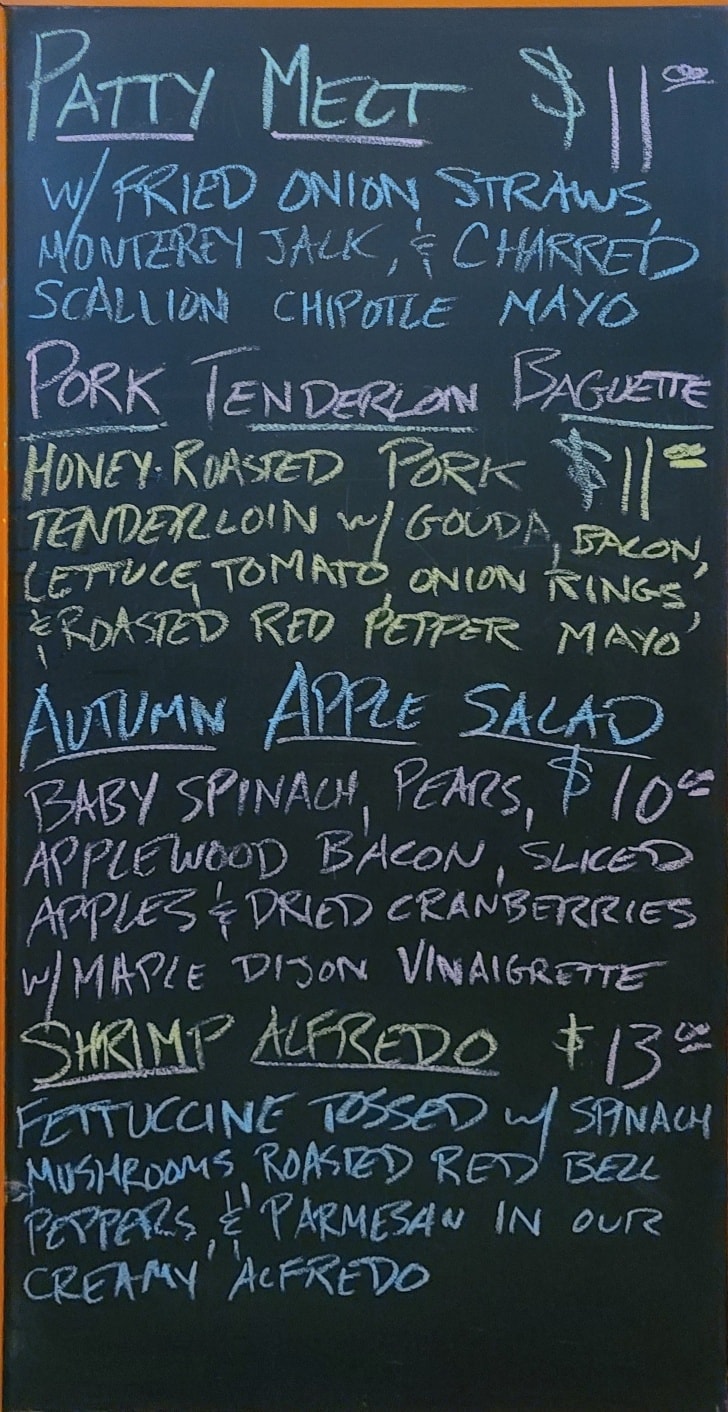 PATTY MELT $11.00
W/ FRIED ONION STRAWS,
MONTEREY JACK, & CHARRED
SCALLION CHIPOTLE MAYO
PORK TENDERLOIN BAGUETTE
HONEY-ROASTED PORK $11.00
TENDERLOIN W/ GOUDA, BACON,
LETTUCE, TOMATO, ONION RINGS,
& ROASTED RED PEPPER MAYO
AUTUMN APPLE SALAD
BABY SPINACH, PEARS, $10.00
APPLEWOOD BACON, SLICED
APPLES & DRIED CRANBERRIES
W/ MAPLE DIJON VINAIGRETTE
SHRIMP ALFREDO $13.00
FETTUCCINE TOSSED W/ SPINACH
MUSHROOMS, ROASTED RED BELL
PEPPERS, & PARMESAN IN OUR
CREAMY ALFREDO